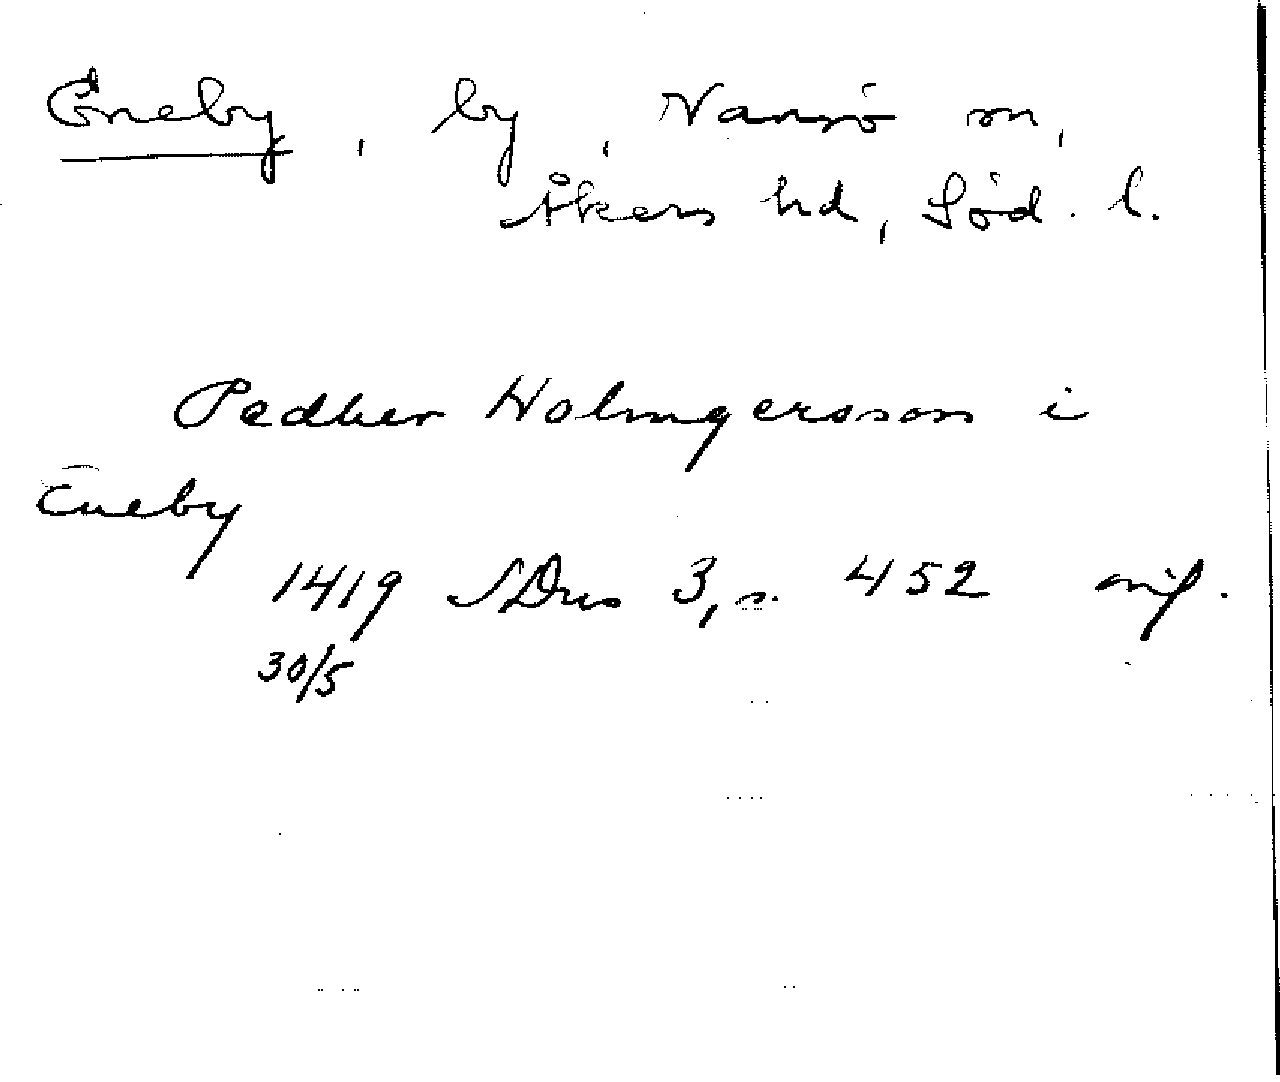 Eneby, by, Vansö sn,
Åkers hd, Söd. l.
Pedher Holmgersson i
Eneby
1419 SDns 3, s. 452 avs.
30/5